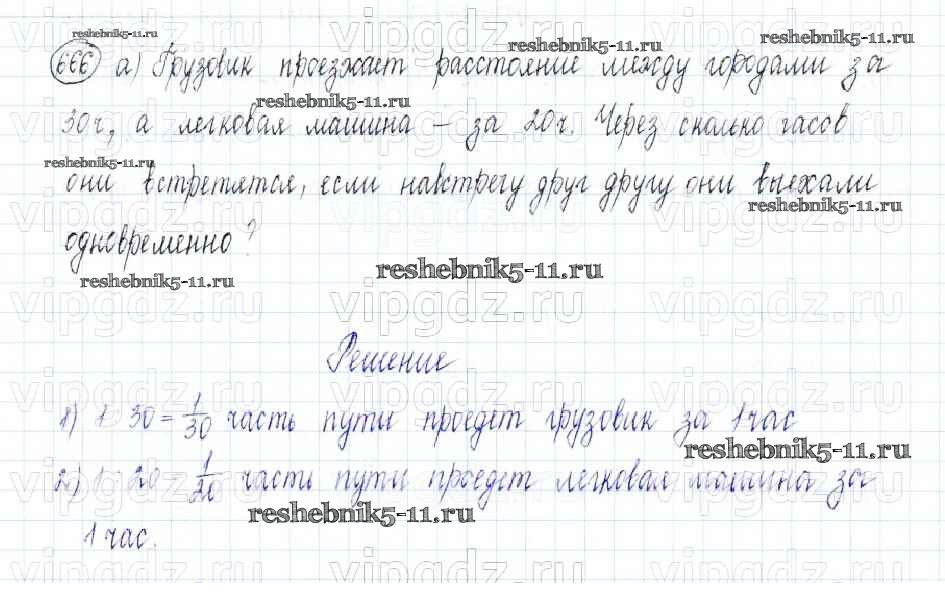 666 а) Грузовик проезжает расстояние между городами за
30 ч, а легковая машина – за 20 ч. Через сколько часов
они встретятся, если навстречу друг другу они выехали
одновременно?
Решение
1) 1 : 30 = 1/30 часть пути проедет грузовик за 1 час
2) 1 : 20 1/20 часть пути проедет легковая машина за
1 час.
reshebnik5-11.ru
reshebnik5-11.ru
reshebnik5-11.ru
reshebnik5-11.ru
reshebnik5-11.ru
reshebnik5-11.ru
reshebnik5-11.ru
reshebnik5-11.ru
reshebnik5-11.ru
reshebnik5-11.ru
vipgdz.ru
vipgdz.ru
vipgdz.ru